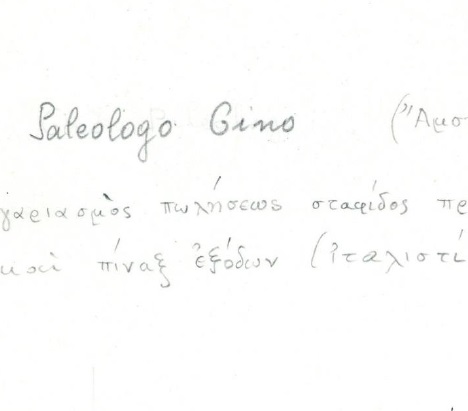 Paleologo Gino ("Αμστ
γαριασμὸς πωλήσεως σταφίδος πρ
καὶ πίναξ ἐξόδων (ἰταλιστί